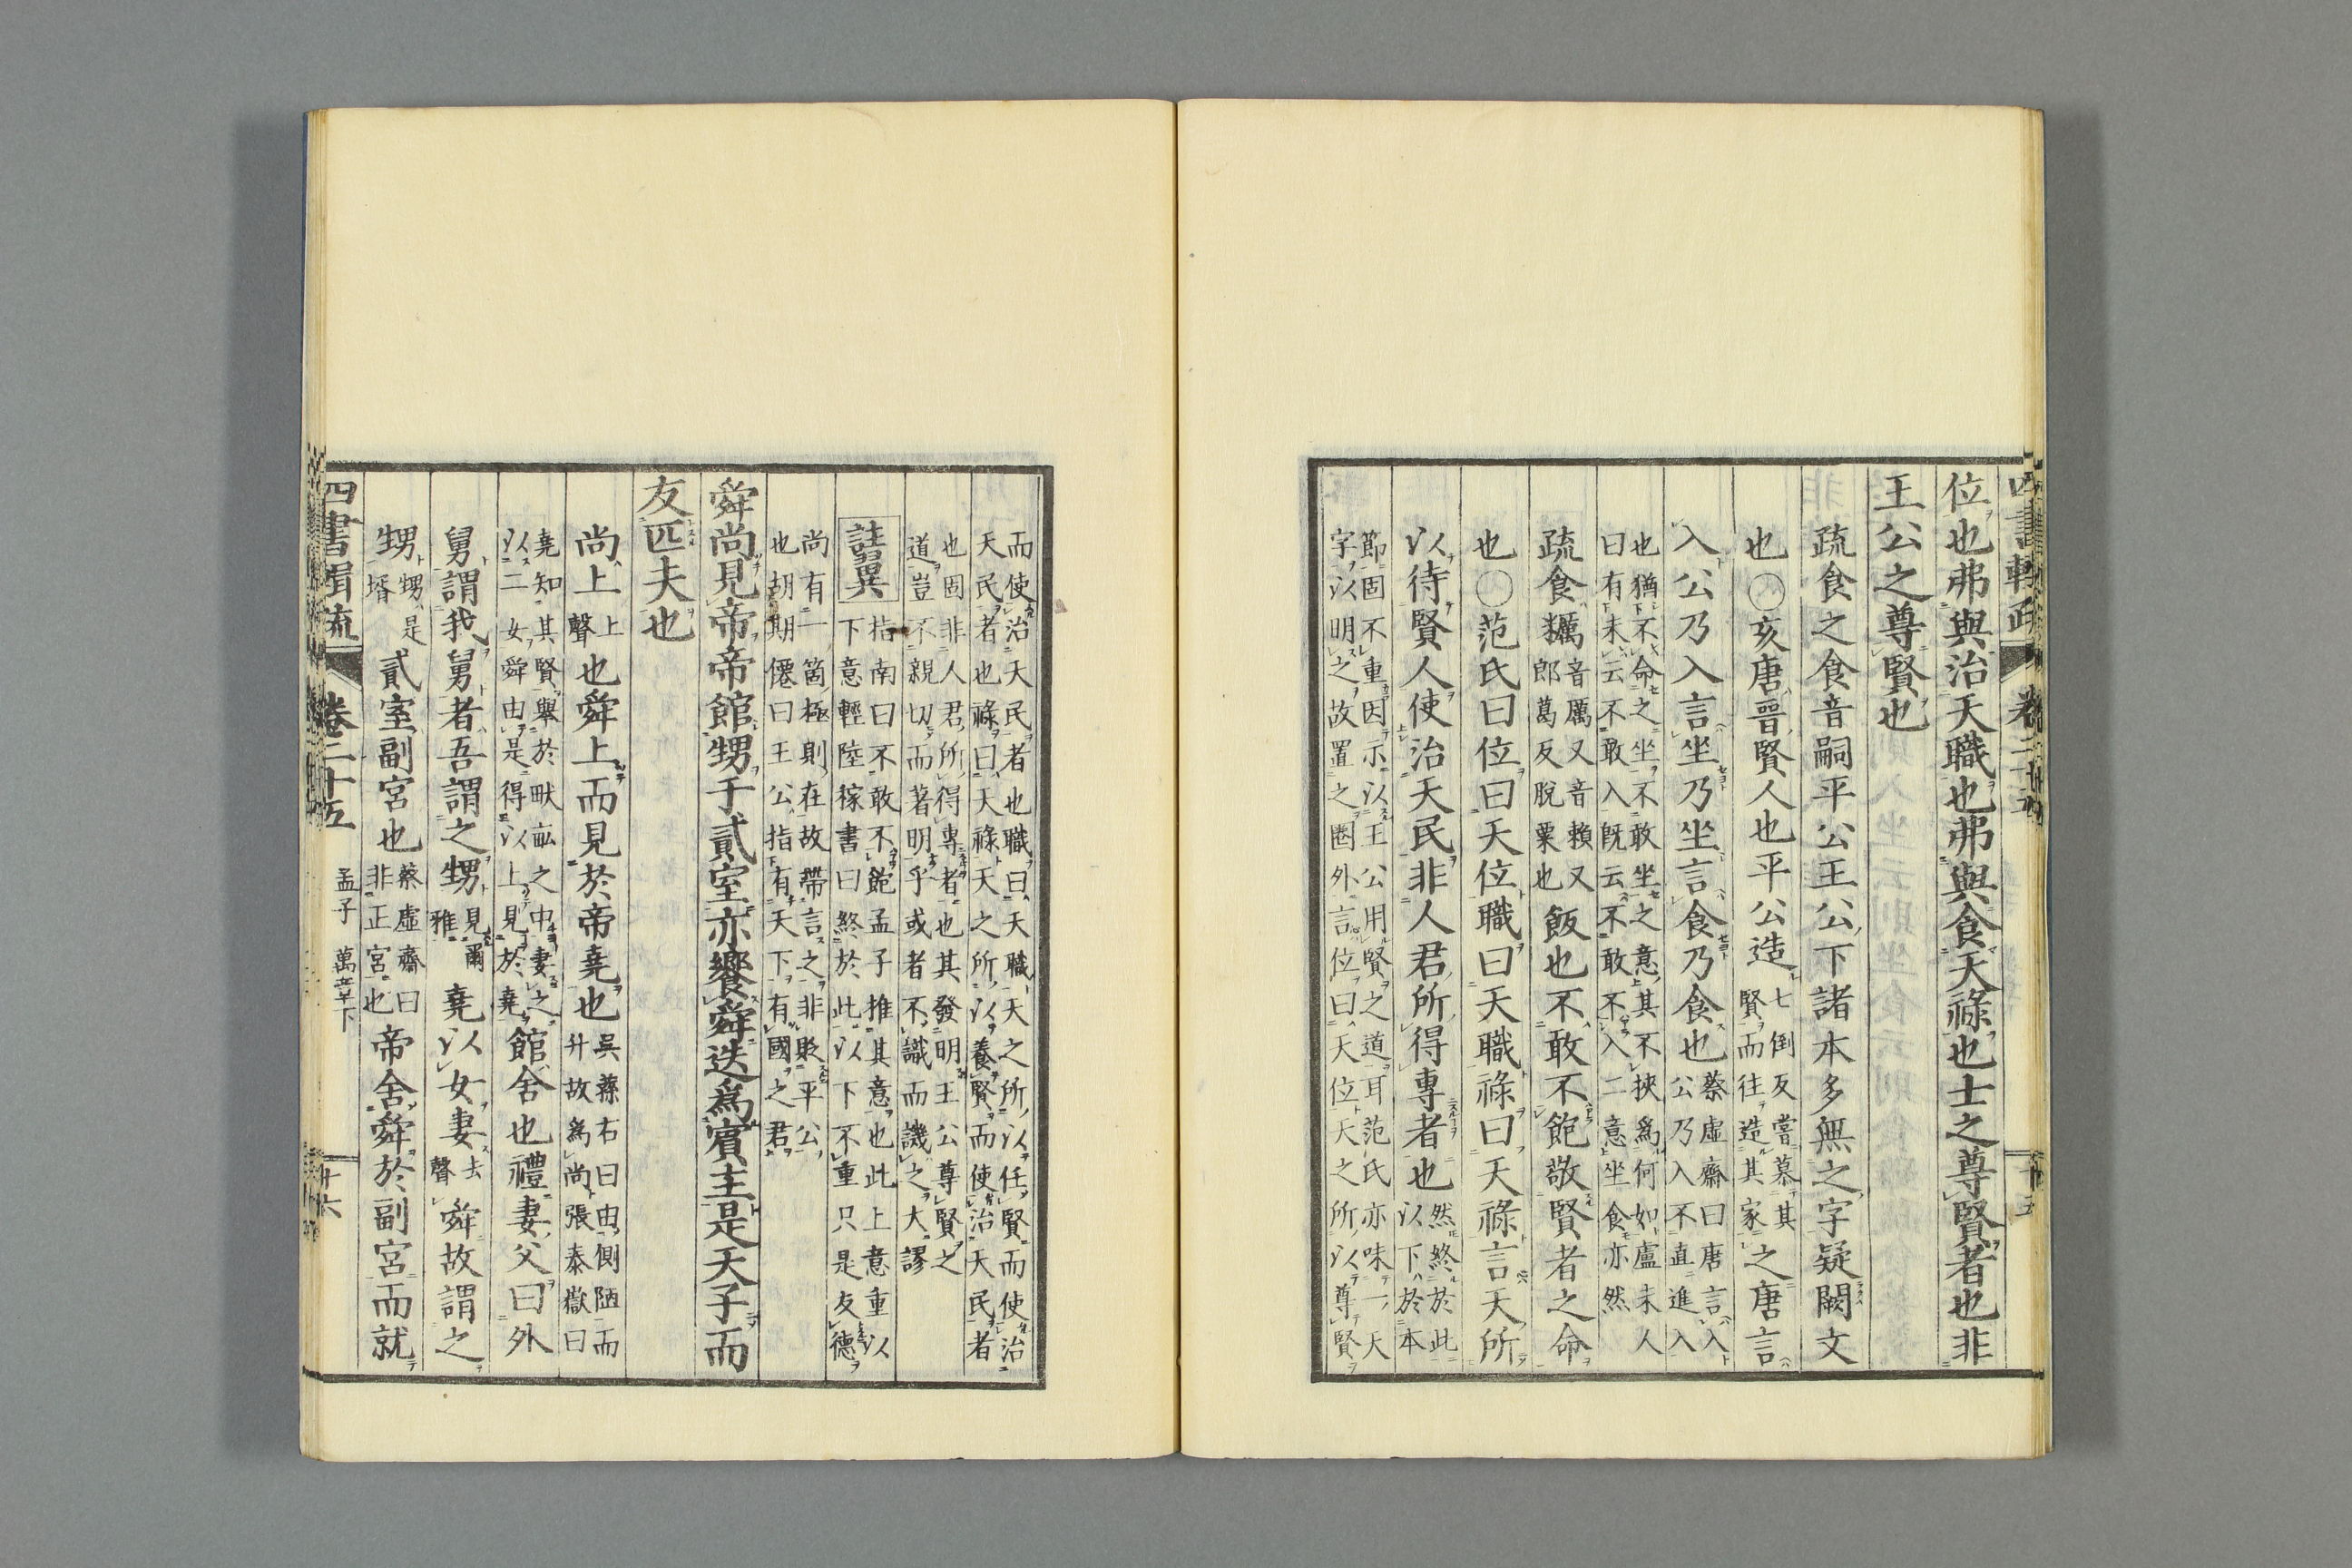 位也弗與治天職也弗與食天祿也士之尊賢者也非
王公之尊賢也
疏食之食音嗣平公王公下諸本多無之字疑闕文
也○亥唐晉賢人也平公造七倒反嘗慕其賢而往造其家之唐言
入公乃入言坐乃坐言食乃食也蔡虛齋曰唐言入公乃入不直進入
也猶不命之坐不敢坐之意其不挾為何如盧未人曰有未云不敢入既云不敢不入二意坐食亦然
疏食糲音厲又音賴又郎葛反脫粟也飯也不敢不飽敬賢者之命
也○范氏曰位曰天位職曰天職祿曰天祿言天所
以待賢人使治天民非人君所得專者也然終於此以下於本
節固不重因示以王公用賢之道耳范氏亦味一天字以明之故置之圈外言位曰天位天之所以尊賢
而使治天民者也職曰天職天之所以任賢而使治天民者也祿曰天祿天之所以養賢而使治天民者
也固非人君所得專者也其發明王公尊賢之道豈不親切而著明乎或者不識而譏之大謬
註翼指南曰不敢不飽孟子推其意也此上意重以下意輕陸稼書曰終於此以下不重只是友德
尚有一箇極則在故帶言之非貶平公也胡期僊曰王公指有天下有國之君
舜尚見帝帝館甥于貳室亦饗舜迭為賓主是天子而
友匹夫也
尚上上聲也舜上而見於帝堯也吳蓀右曰由側陋而升故為尚張泰嶽曰
堯知其賢舉於畎畝之中妻之以二女舜由是得以上見於堯館舍也禮妻父曰外
舅謂我舅者吾謂之甥見爾雅堯以女妻去聲舜故謂之
甥甥是壻貳室副宮也蔡虛齋曰非正宮也帝舍舜於副宮而就
四書輯疏 卷二十五 孟子 萬章下 廿六